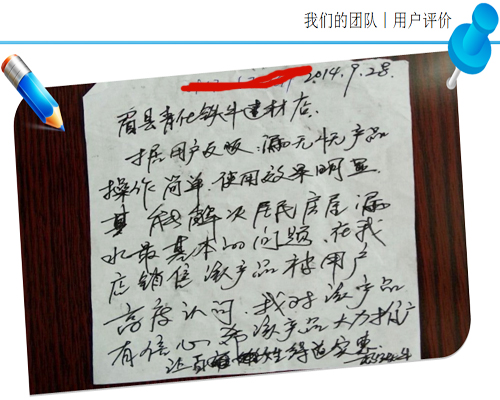 我们的团队 | 用户评价
2014.9.28.
眉县青化铁牛建材店.
据用户反映:漏无忧产品
操作简单.使用效果明显.
其能解决居民房屋漏
水最基本的问题、在我
店销售该产品被用户
高度认可.我对该产品
有信心、希该产品大力推广